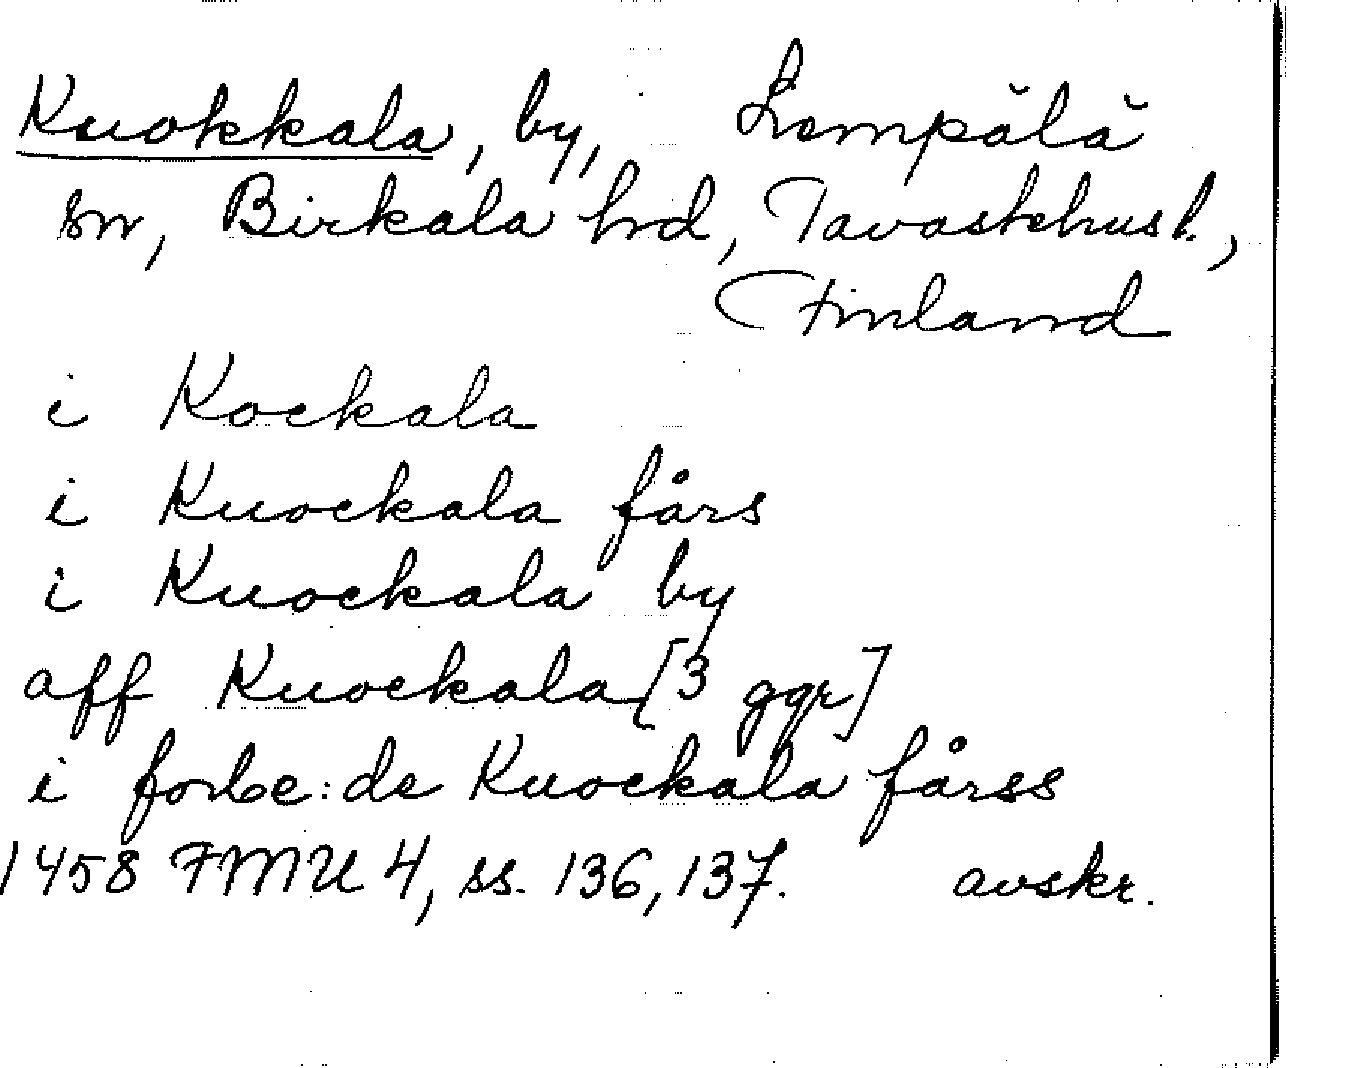 Kuokkala, by, Lempälä
sn, Birkala hrd, Tavastehus l.,
Finland
i Kockala
i Kuockala fårs
i Kuockala by
aff Kuockala [3 ggr]
i forbe:de Kuockala fårss
1458 FMU 4, ss. 136, 137. avskr.